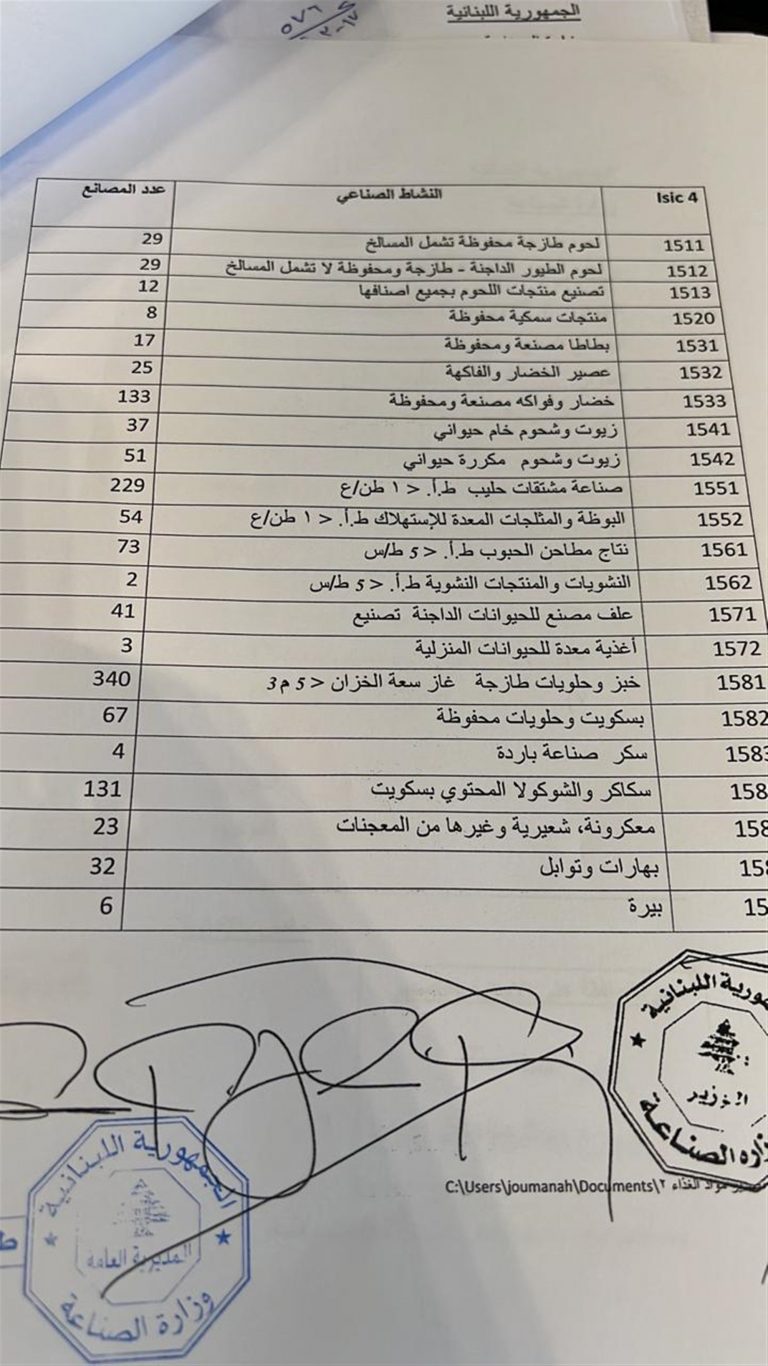 الجمهورية اللبنانية
Isic 4 النشاط الصناعي عدد المصانع
1511 لحوم طازجة محفوظة تشمل المسالخ 29
1512 لحوم الطيور الداجنة - طازجة ومحفوظة لا تشمل المسالخ 29
1513 تصنيع منتجات اللحوم بجميع اصنافها 12
1520 منتجات سمكية محفوظة 8
1531 بطاطا مصنعة ومحفوظة 17
1532 عصير الخضار والفاكهة 25
1533 خضار وفواكه مصنعة ومحفوظة 133
1541 زيوت وشحوم خام حيواني 37
1542 زيوت وشحوم مكررة حيواني 51
1551 صناعة مشتقات حليب ط.أ. < ١ طن/ع 229
1552 البوظة والمثلجات المعدة للإستهلاك ط.أ. < ١ طن/ع 54
1561 نتاج مطاحن الحبوب ط.أ. < 5 ط/س 73
1562 النشويات والمنتجات النشوية ط.أ. < 5 ط/س 2
1571 علف مصنع للحيوانات الداجنة تصنيع 41
1572 أغذية معدة للحيوانات المنزلية 3
1581 خبز وحلويات طازجة غاز سعة الخزان < 5 م3 340
1582 بسكويت وحلويات محفوظة 67
158 سكر صناعة باردة 4
158 سكاكر والشوكولا المحتوي بسكويت 131
158 معكرونة، شعيرية وغيرها من المعجنات 23
15 بهارات وتوابل 32
15 بيرة 6
الجمهورية اللبنانية
الوزير
وزارة الصناعة
C:\Users\joumanah\Documents\٢ مواد الغذاء
الجمهورية اللبنانية
المديرية العامة
وزارة الصناعة